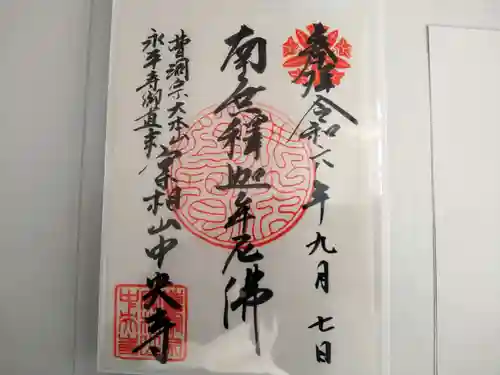 奉拝 令和六年九月七日
南無釋迦牟尼佛
曹洞宗大本山
永平寺御直末
業相山中央寺